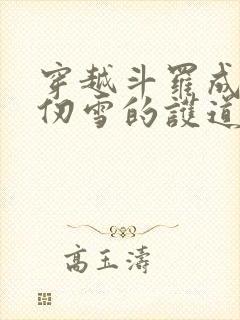 穿越斗罗成
仞雪的護道
高玉濤